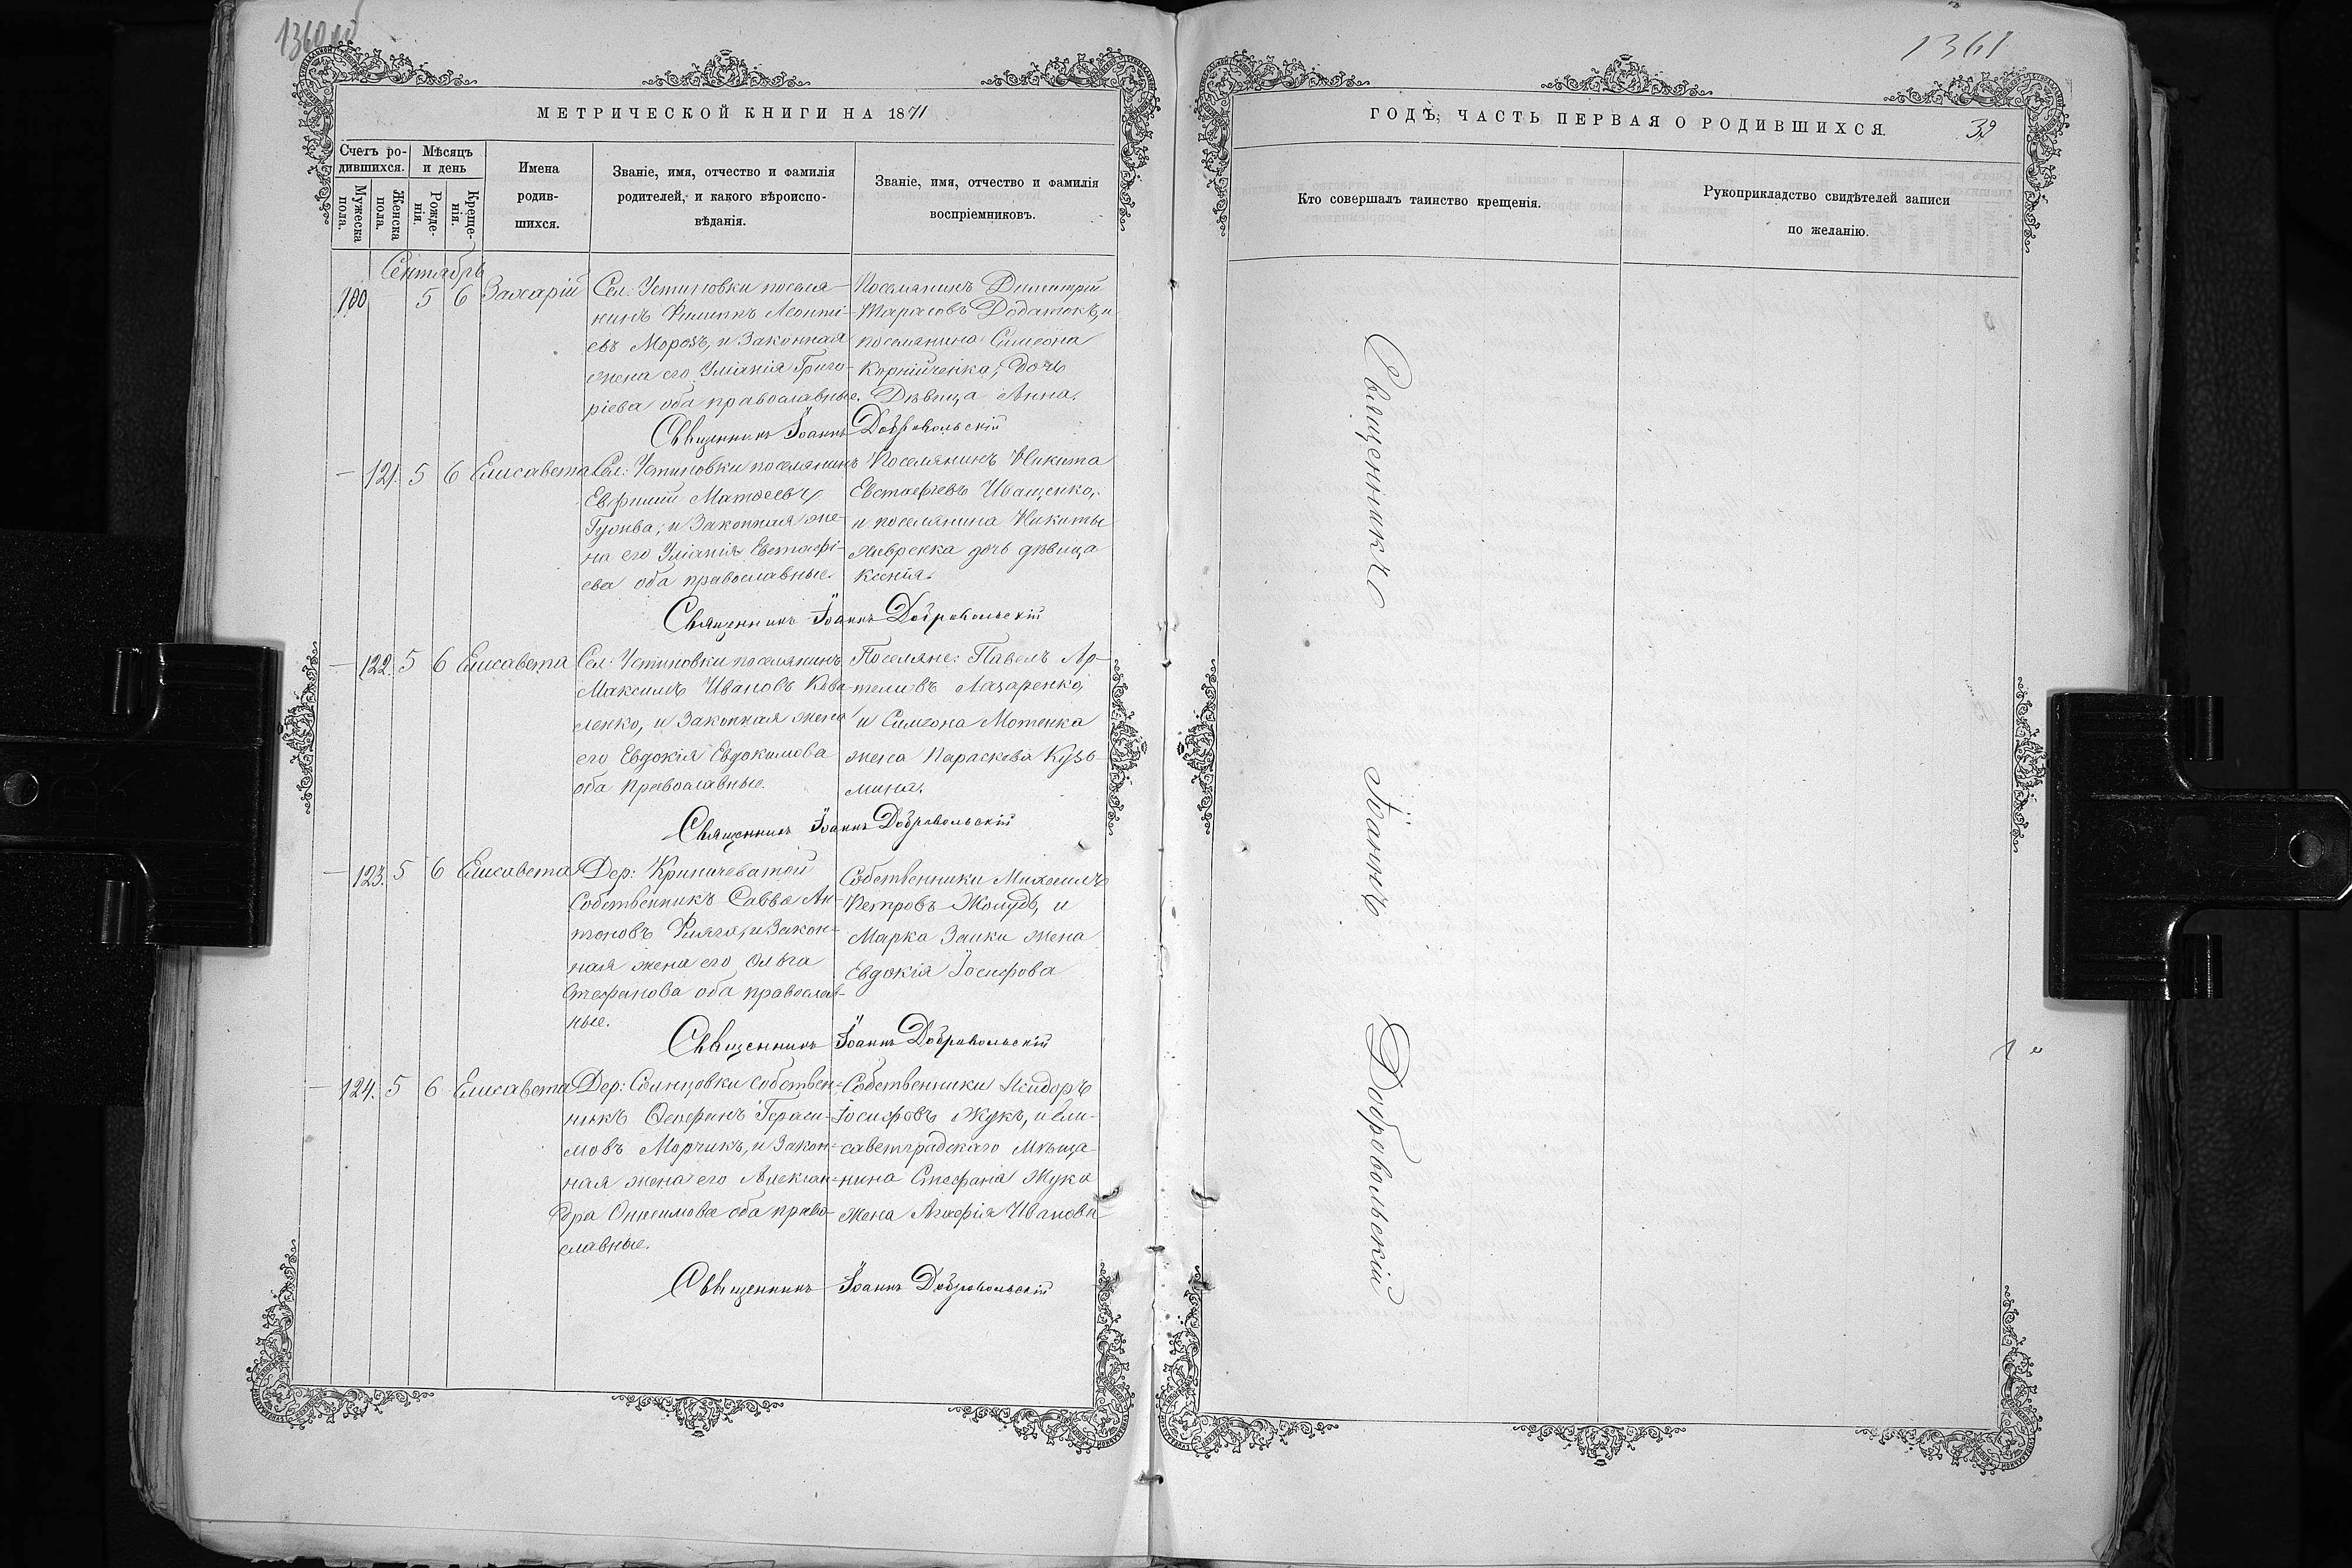 1361
МЕТРИЧЕСКОЙ КНИГИ НА 1871
Счетъ ро-
дившихся.
Мѣсяцъ
и день
Мужеска
пола.
Женска
пола.
Рожде-
нія.
Креще-
нія.
Имена
родив-
шихся.
Званіе, имя, отчество и фамилія
родителей, и какого вѣроиспо-
вѣданія.
Званіе, имя, отчество и фамилія
воспріемниковъ.
Сентябрь
100 5 6 Захарій
Сел: Устиновки поселя-
нинъ Филиппъ Леонті-
евъ Морозъ, и Законная
жена его Уліанія Григо-
ріева оба православные.
Поселянинъ Димитрій
Тарасовъ Додатокъ, и
поселянина Симеона
Корнійченка, дочь
Дѣвица Анна.
Священникъ Іоаннъ Добровольскій
— 121. 5 6 Елисавета
Сел: Устиновки поселянинъ
Евфимій Матѳеевъ
Гужва, и Законная же-
на его Уліанія Евстафі-
ева оба православные.
Поселянинъ Никита
Евстафіевъ Иващенко,
и поселянина Никиты
дочь дѣвица
Ксенія.
Священникъ Іоаннъ Добровольскій
— 122. 5 6 Елисавета
Сел: Устиновки поселянинъ
Максимъ Ивановъ Кова-
ленко, и Законная жена
его Евдокія Евдокимова
оба православные.
Поселяне: Павелъ Ар-
темовъ Лазаренко,
и Симеона Мотенка
жена Параскева Кузь-
мина.
Священникъ Іоаннъ Добровольскій
— 123. 5 6 Елисавета
Дер: Криничеватой
Собственникъ Савва Ан-
тоновъ Фляга, и Закон-
ная жена его Ольга
Стефанова оба православ-
ные.
Собственники Михаилъ
Петровъ Жолудь, и
Марка Заики жена
Евдокія Іосифова
Священникъ Іоаннъ Добровольскій
— 124. 5 6 Елисавета
Дер: собствен-
никъ Герасі-
мовъ Морчикъ, и Закон-
ная жена его Алексан-
дра Онисимова оба право-
славные.
Собственники Исидоръ
Іосифовъ Жукъ, и Ели-
саветградскаго Мѣща-
нина Стефана Жука
жена Агафія Иванов
Священникъ Іоаннъ Добровольскій
ГОДѢ, ЧАСТЬ ПЕРВАЯ О РОДИВШИХСЯ.
Кто совершалъ таинство крещенія.
Рукоприкладство свидѣтелей записи
по желанію.
Священникъ Іоаннъ Добровольскій